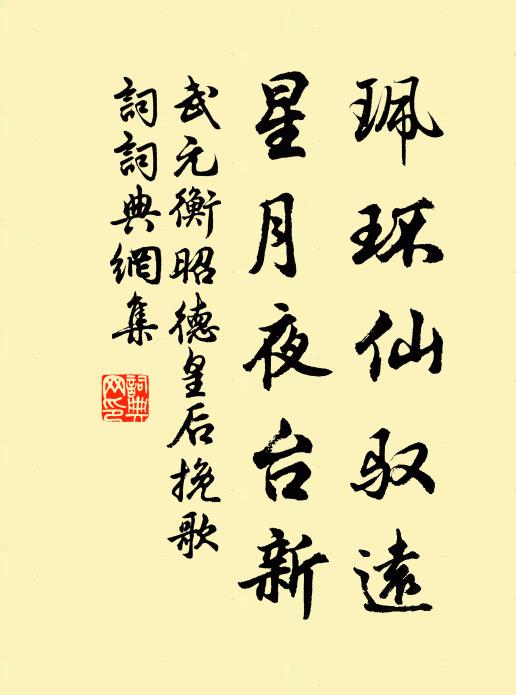 珮环仙驭遠
星月夜台新
武元衡昭德皇后挽歌
詞詞典網集
詞典
网印